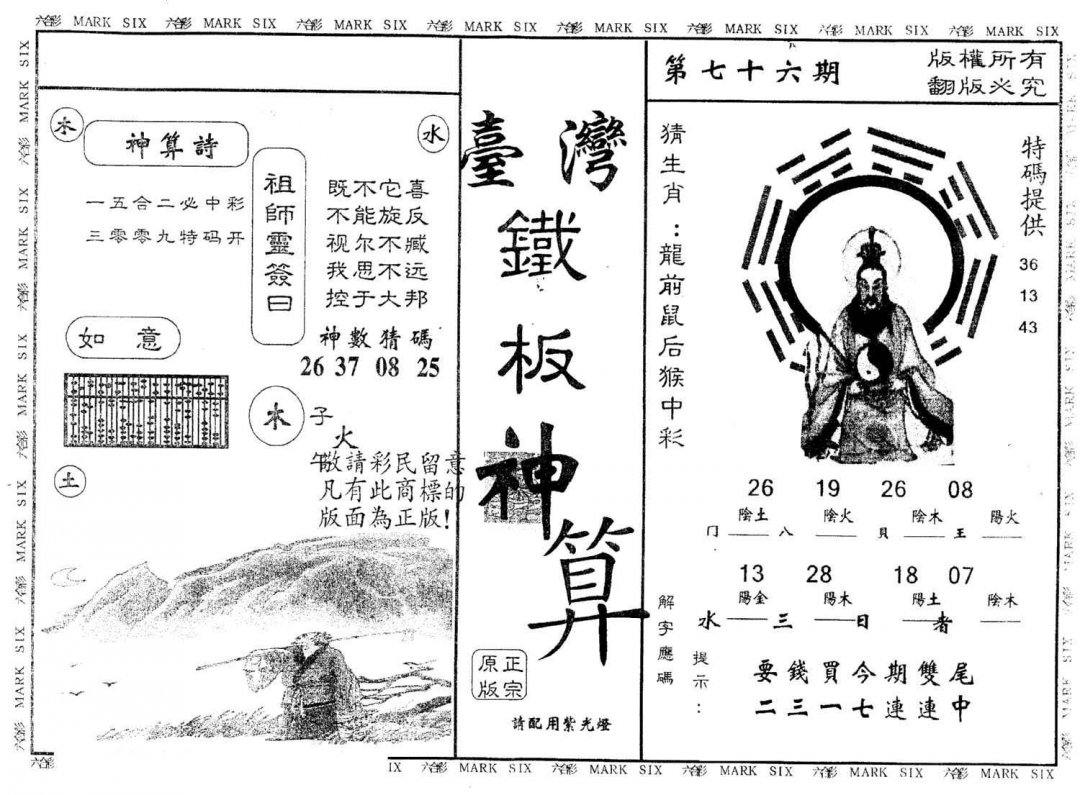 六彩 MARK SIX 六彩 MARK SIX 六彩 MARK SIX 六彩 MARK SIX 六彩 MARK SIX 六彩 MARK SIX 六彩 MARK SIX 六彩 MARK SIX
第七十六期
版權所有
翻版必究
木
神算詩
水
一五合二必中彩
三零零九特码开
祖師靈簽曰
既不它喜
不能旋反
视尔不臧
我思不远
控于大邦
神數猜碼
26 37 08 25
如意
木
子
火
午
土
敬請彩民留意
凡有此商標的
版面為正版!
臺灣
鐵板神算
正宗
原版
請配用紫光燈
猜生肖:龍前鼠后猴中彩
特碼提供
36
13
43
26 19 26 08
陰土 陰火 陰木 陽火
门 八 貝 王
13 28 18 07
陽金 陽木 陽土 陰木
水 三 日 者
解字應碼
提示:
要錢買今期雙尾
二三一七連連中
IX 六彩 MARK SIX 六彩 MARK SIX 六彩 MARK SIX 六彩 MARK SIX 六彩 MARK SIX